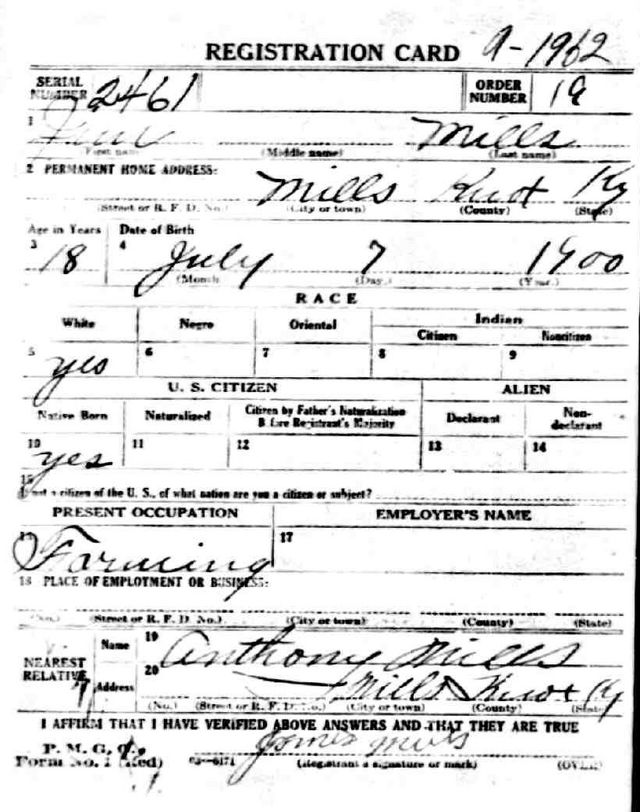 REGISTRATION CARD A-1962
SERIAL NUMBER 2461 ORDER NUMBER 19
1 Mills
First name (Middle name) (Last name)
2 PERMANENT HOME ADDRESS: Mills Knox Ky
(Street or R. F. D. No.) (City or town) (County) (State)
Age in Years Date of Birth
3 18 4 July 7 1900
(Month) (Day) (Year.)
RACE
White Negro Oriental Indian
Citizen Noncitizen
5 yes 6 7 8 9
U. S. CITIZEN ALIEN
Native Born Naturalized Citizen by Father's Naturalization Before Registrant's Majority Declarant Non-declarant
10 yes 11 12 13 14
15
If not a citizen of the U. S., of what nation are you a citizen or subject?
PRESENT OCCUPATION EMPLOYER'S NAME
Farming 17
18 PLACE OF EMPLOYMENT OR BUSINESS:
(No.) (Street or R. F. D. No.) (City or town) (County) (State)
NEAREST RELATIVE Name 19 Anthony Mills
Address 20 Mills Knox Ky
(No.) (Street or R. F. D. No.) (City or town) (County) (State)
I AFFIRM THAT I HAVE VERIFIED ABOVE ANSWERS AND THAT THEY ARE TRUE
P. M. G. O.
Form No. 1 (Red) 03—6171 James Mills
(Registrant's signature or mark) (OVER)